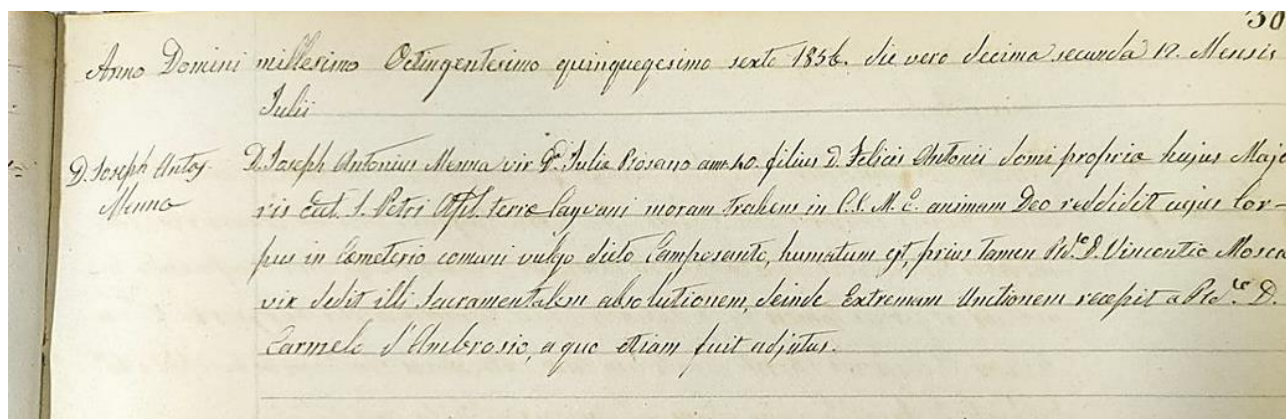 30
Anno Domini millesimo Octingentesimo quinquegesimo sexto 1856. die vero decima secunda 12. Mensis
Julii
D. Joseph Anton.
Menna
D. Joseph Antonius Menna vir Julia Rosano ann. 40. filius D. Felicis Antonii domi propriæ hujus Majo
ris S. Petri Apl. terræ Cayvani moram trahens in C. S. M. E. animam Deo reddidit cujus Cor-
pus in Cemeterio comuni vulgo dicto Camposanto, humatum est, prius tamen D. Vincentio Mosca
vix dedit illi Sacramentalem absolutionem, deinde Extremam Unctionem recepit a D.
Carmelo d'Ambrosio, a quo etiam fuit adjutus.